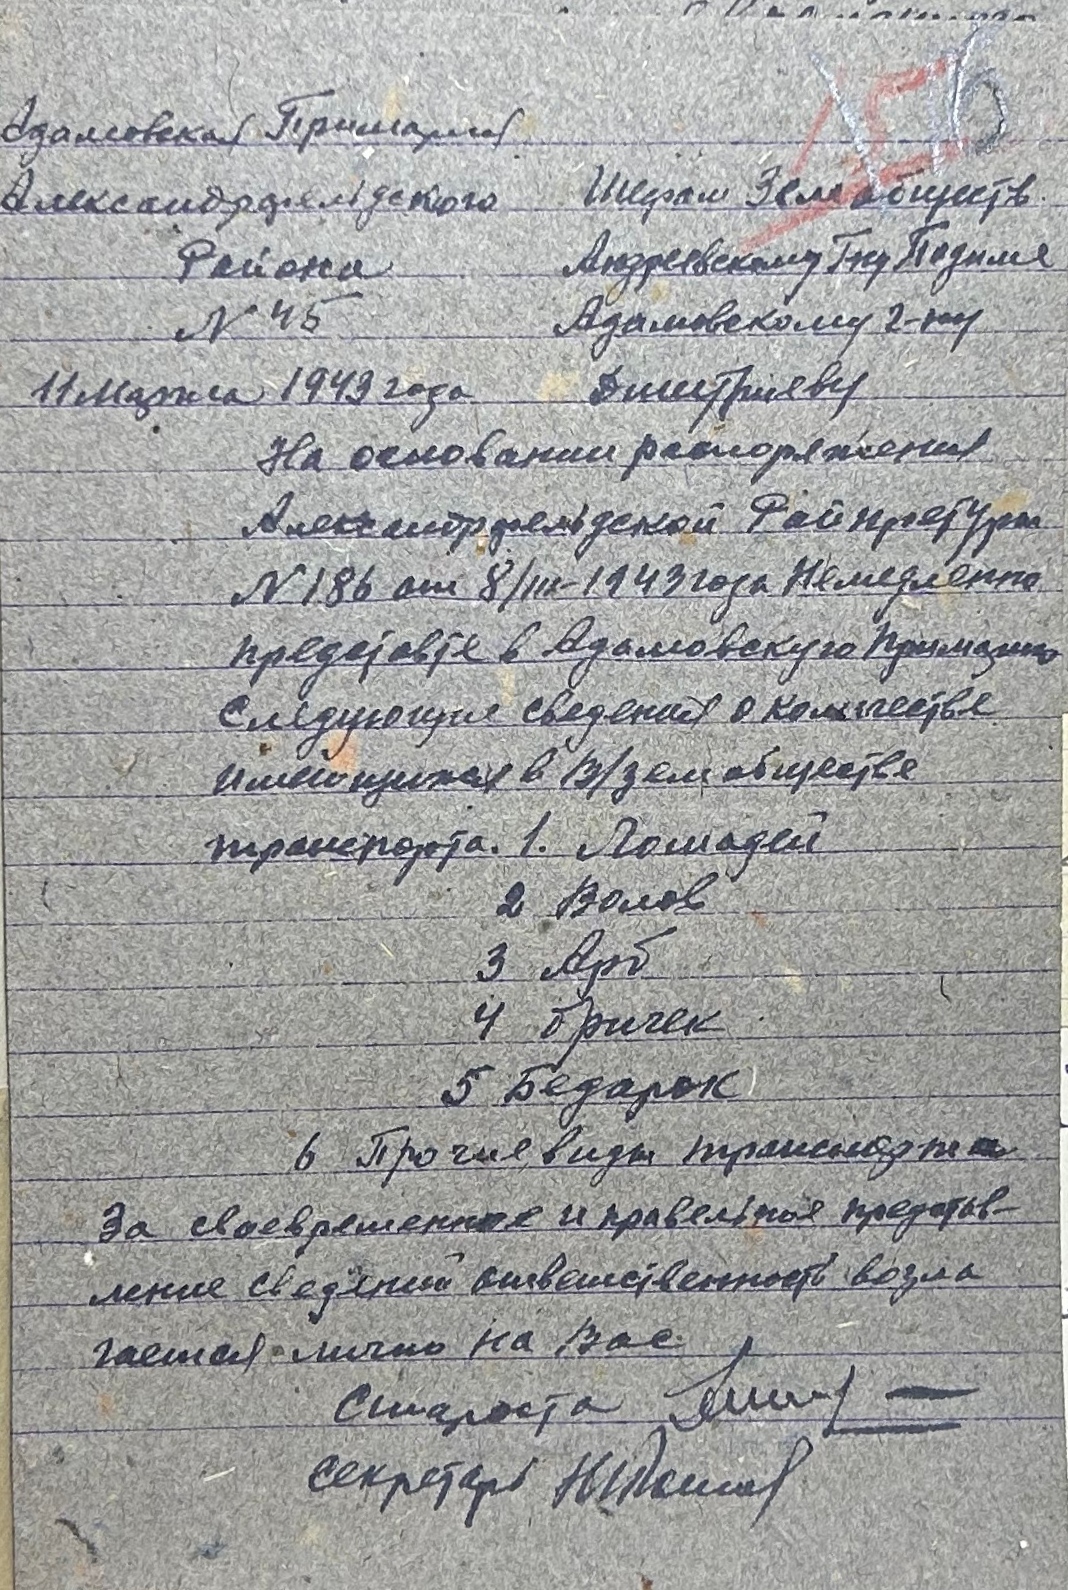 Адамовская Примария
Александрфельдского Шефам Землеобществ.
Района Андреевскому Г-ну
N 45 Адамовскому г-ну
11 Марта 1943 года Дмитриеву
На основании распоряжения
Александрфельдской Райпретуры
N 186 от 8/III-1943 года Немедленно
представте в Адамовскую Примарию
Следующие сведения о количестве
имеющихся в В/земобществе
транспорта. 1. Лошадей
2 Волов
3 Арб
4 бричек
5 Бедарок
6 Прочие виды транспорта
За своевременное и правельное представ-
ление сведений ответственность возла
гается лично на Вас.
Староста
Секретарь